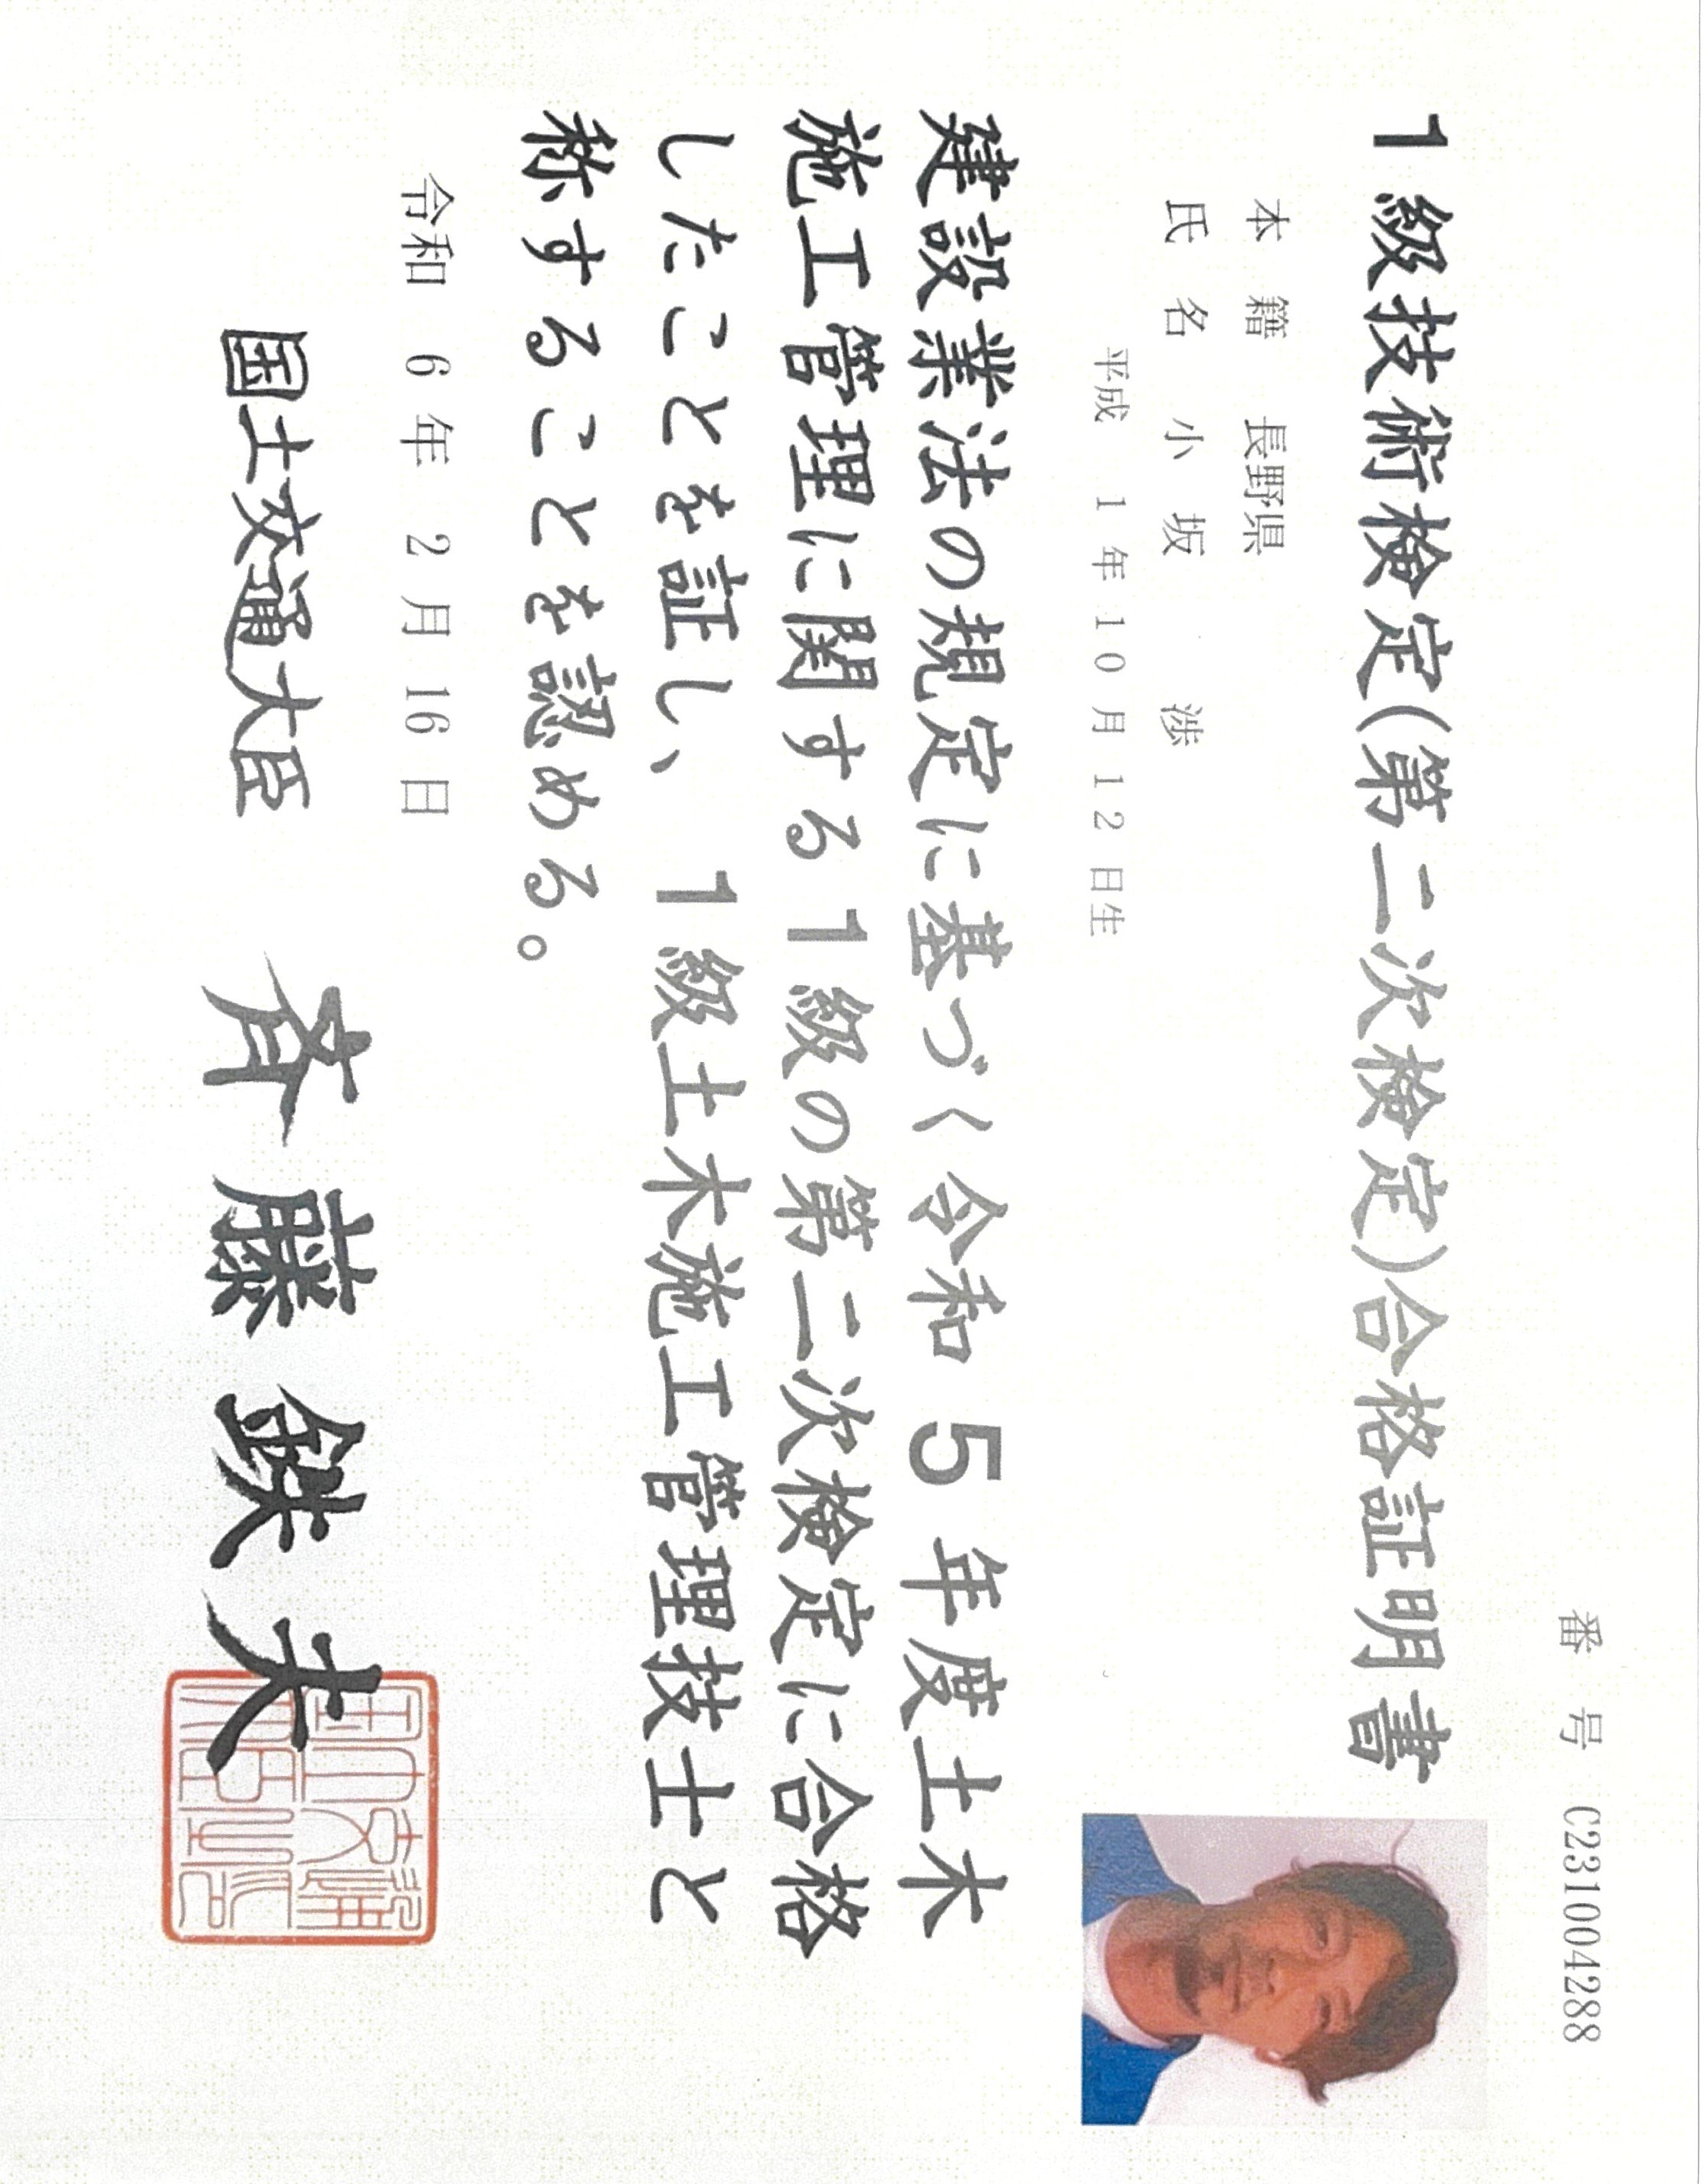 番　号　C231004288
1級技術検定(第二次検定)合格証明書
本　籍　長野県
氏　名　小　坂　　渉
平成　1　年　10　月　12　日生
建設業法の規定に基づく令和　5　年度土木
施工管理に関する1級の第二次検定に合格
したことを証し、1級土木施工管理技士と
称することを認める。
令和　6　年　2　月　16　日
国土交通大臣　斉　藤　鉄　夫